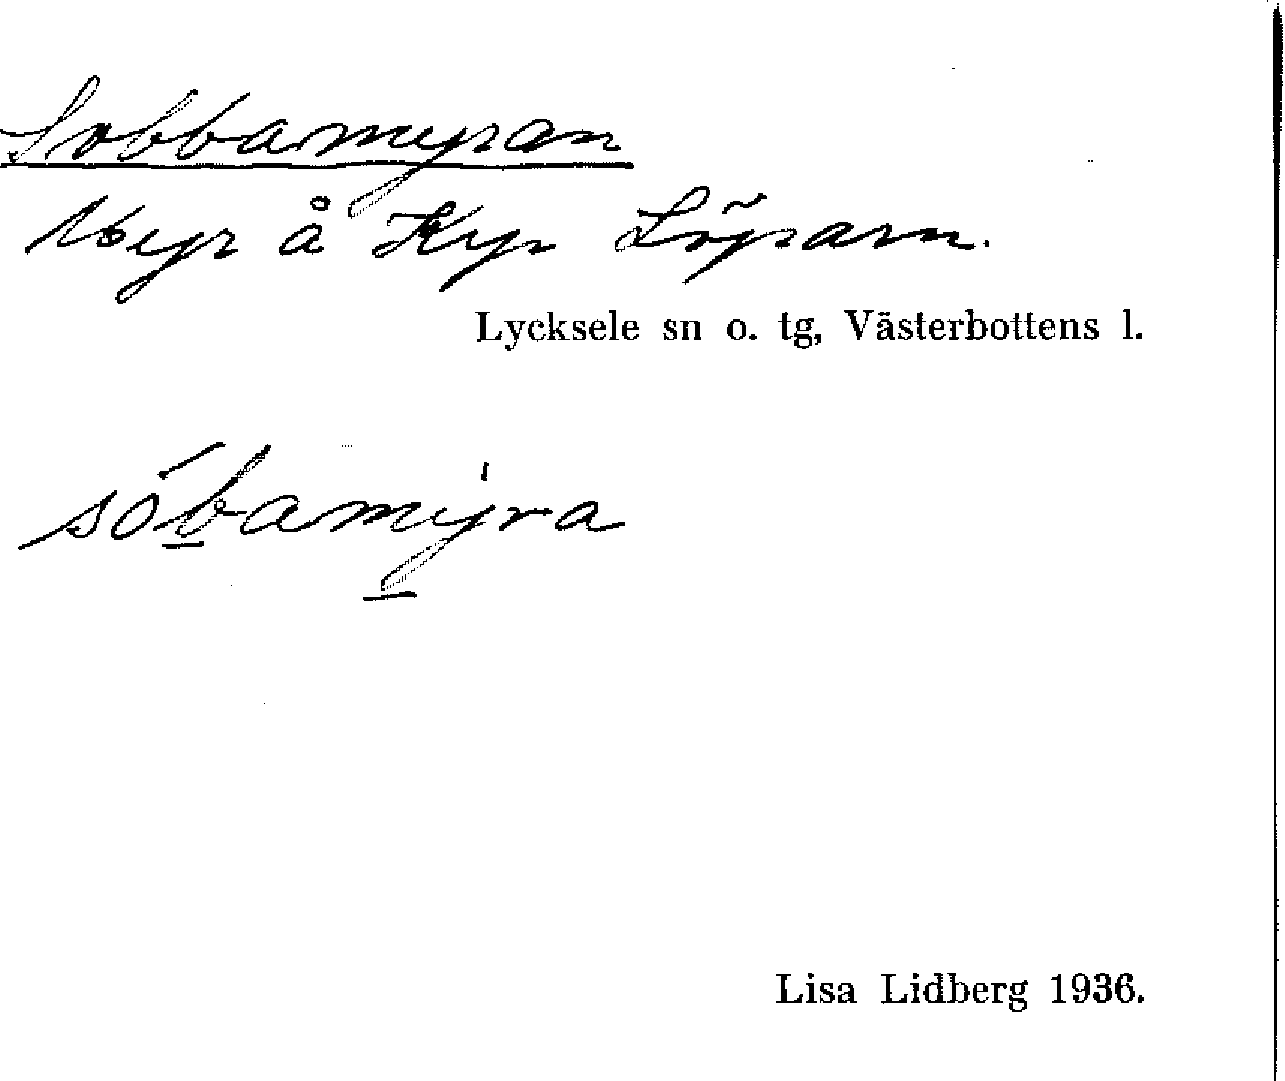 Sobbamyran
Myr å Krp Löparn.
Lycksele sn o. tg, Västerbottens l.
sóbamyra
Lisa Lidberg 1936.